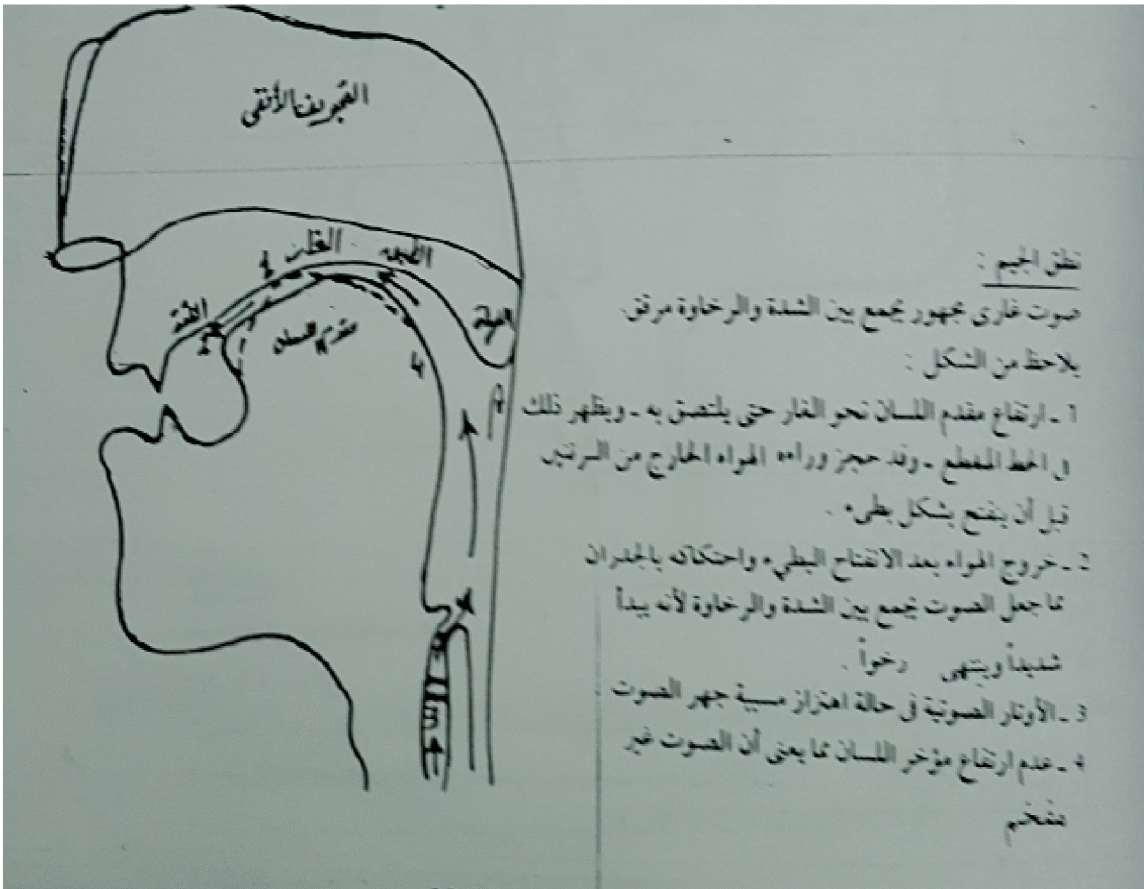 التجويف الأنفى
الغار
الطبق
اللثة
اللهاة
مقدم اللسان
1
2
3
4
نطق الجيم :
صوت غارى مجهور يجمع بين الشدة والرخاوة مرقق.
يلاحظ من الشكل :
1 ـ ارتفاع مقدم اللسان نحو الغار حتى يلتصق به ـ ويظهر ذلك
فى الخط المقطع ـ وقد حجز وراءه الهواء الخارج من الرئتين
قبل أن ينفتح بشكل بطىء .
2 ـ خروج الهواء بعد الانفتاح البطىء واحتكاكه بالجدران
مما جعل الصوت يجمع بين الشدة والرخاوة لأنه يبدأ
شديداً وينتهى رخواً .
3 ـ الأوتار الصوتية فى حالة اهتزاز مسببة جهر الصوت
4 ـ عدم ارتفاع مؤخر اللسان مما يعنى أن الصوت غير
مفخم